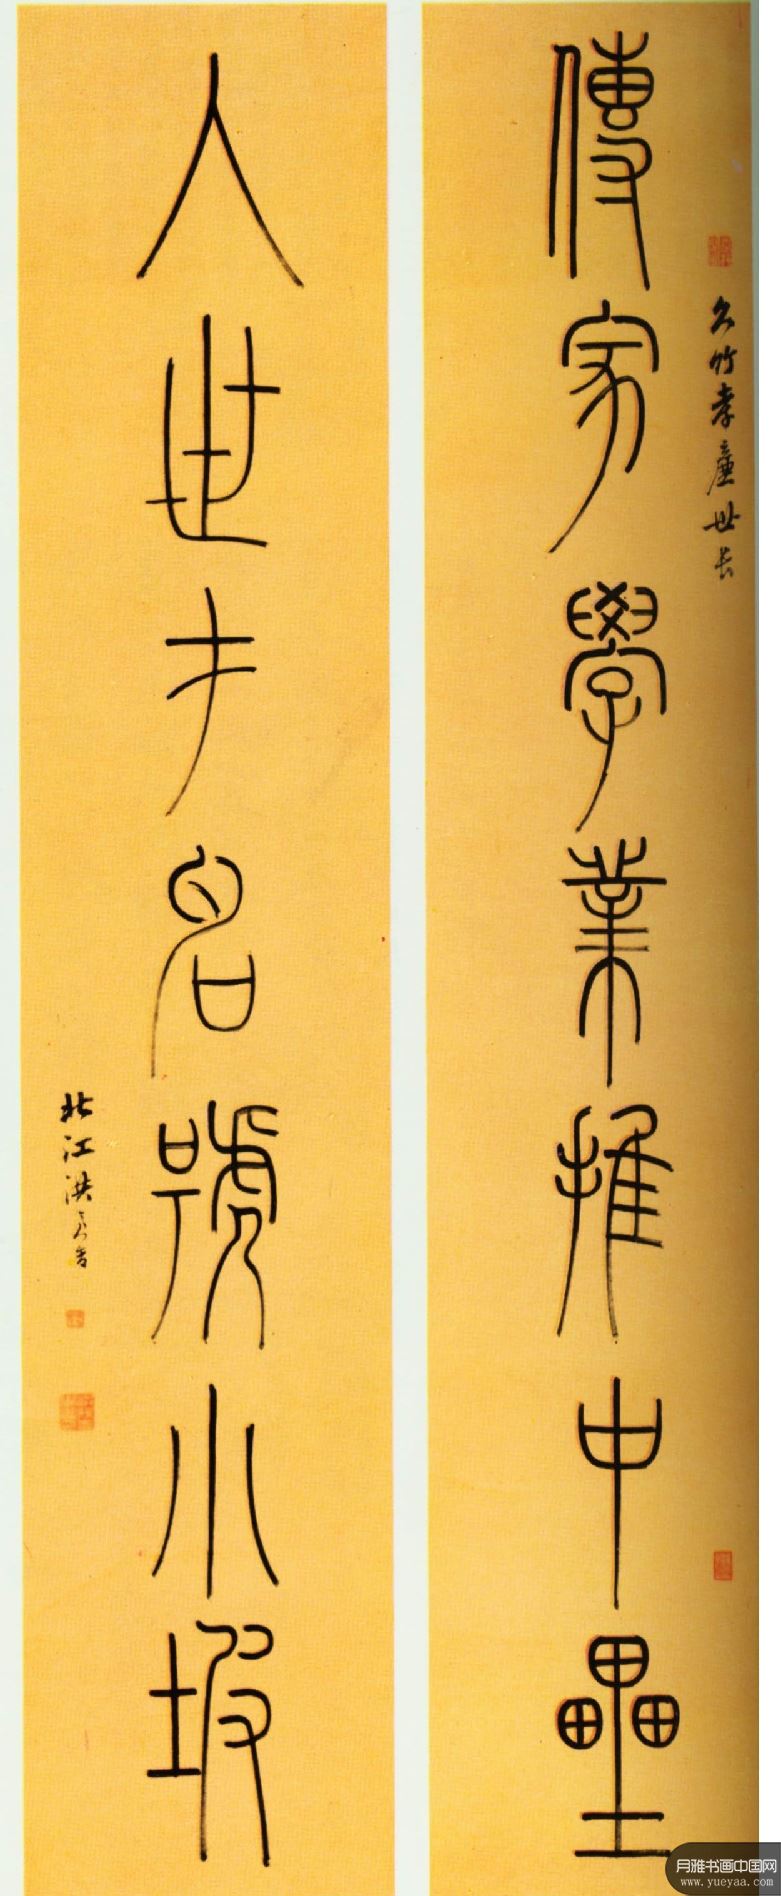 竹孝廉世長
傳家學業推中壘
入世才名號小坡
北江洪亮吉
月雅书画中国网
www.yueyaa.com